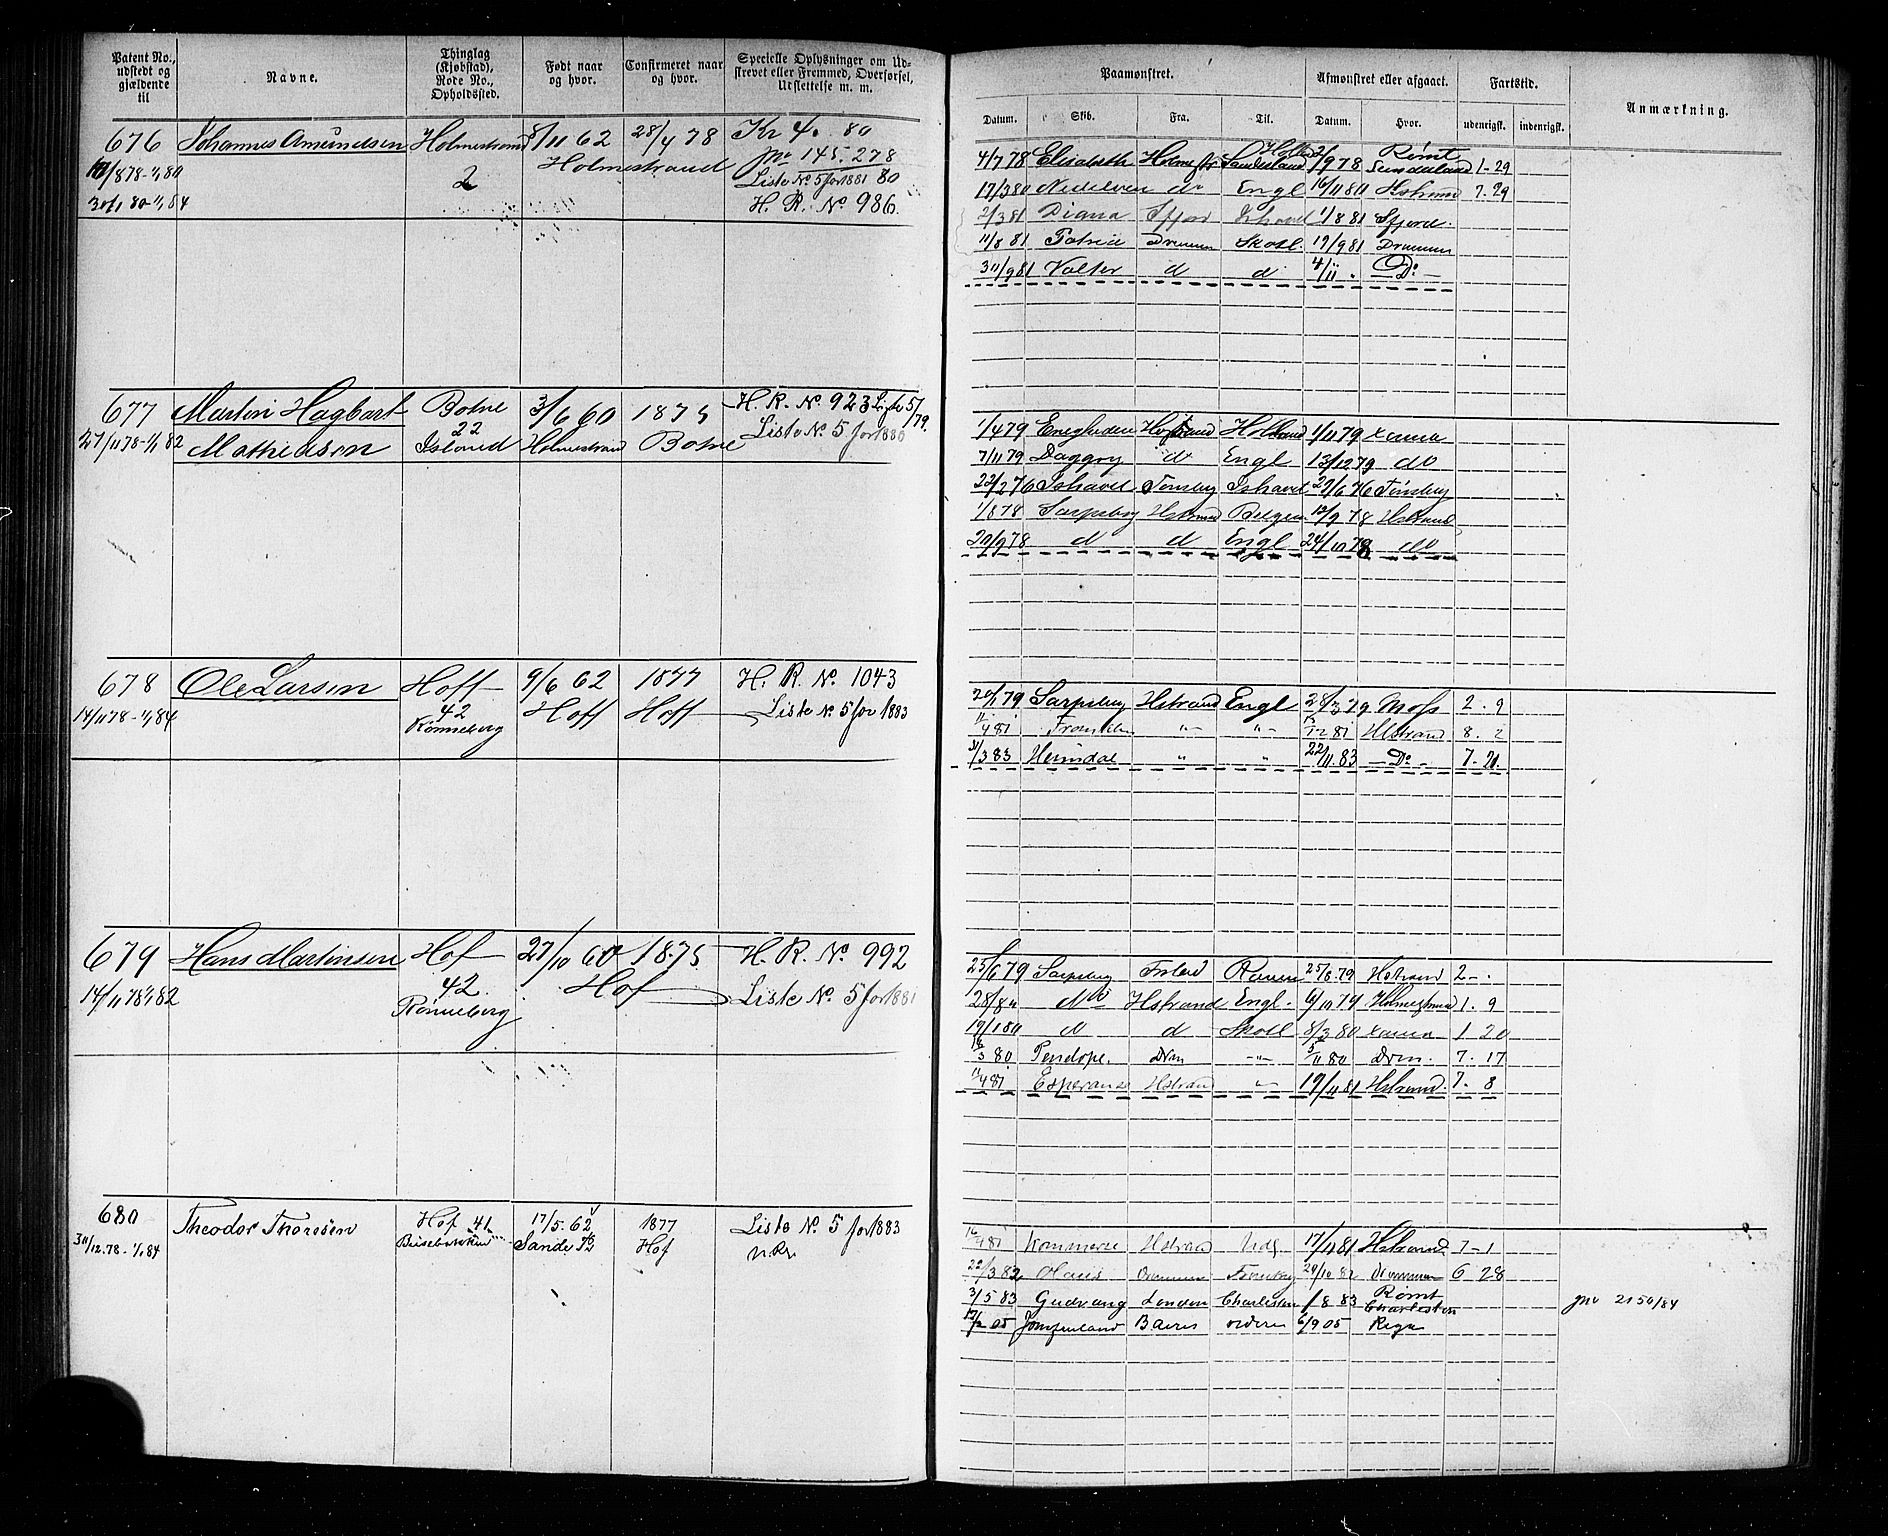 Patent No., udstedt og gjældende til
Navne.
Thinglag (Kjøbstad), Rode No., Opholdssted.
Født naar og hvor.
Confirmeret naar og hvor.
Specielle Oplysninger om Udskrevet eller Fremmed, Overførsel, Udslettelse m. m.
Paamønstret.
Afmønstret eller afgaaet.
Fartstid.
Anmærkning.
Datum. Skib. Fra. Til. Datum. Hvor. udenrigsk. indenrigsk.
676 Johannes Amundsen Holmestrand 8/11 62 28/4 78 Kr 4. 80
Holmestrand
2
Liste No. 5 for 1881 80
H. R. No. 986.
4/7 78 Elisabeth Sunderland 2/9 78 Rømt Sunderland 1-29
17/3 80 do Engl 16/11 80 Hstrand 7.29
2/3 81 Diana Ishavet 1/8 81 Sfjord.
11/8 81 Patria Drammen Skotl. 19/9 81 Drammen
Valter d d 4/11 " — Do —
677 Martin Hagbart Botne 3/6 60 1875 H. R. No. 923 Liste 5/79.
22
27/11 78-1/1 82 Mathiasen Island Holmestrand Botne Liste No. 5 for 1880
1/4 79 Enigheden 1/11 79
7/11 79 Daggry d Engl 13/12 79 do
22/2 76 Ishavet Tønsberg Ishavet 29/6 76 Tønsberg
1/8 78 Sarpsborg Hstrand Belgien 12/9 78 Hstrand
20/9 78 d d Engl 24/10 78 do
678 Ole Larsen Hoff 9/6 62 1877 H. R. No. 1043
14/11 78-1/1 84 42 Hoff Hoff Liste No. 5 for 1883
Rønneberg
20/1 79 Sarpsborg Hstrand Engl 28/3 79 Moss 2. 9
11/4 81 Franklin " " Hstrand 8. 2
31/3 83 Heimdal " " 22/11 83 — Do — 7. 21.
679 Hans Martinsen Hof 27/10 60 1875 H. R. No. 992
14/11 78 1/1 82 42 Hof Liste No. 5 for 1881
Rønneberg
25/6 79 Sarpsborg 25/8 79 Hstrand 2 - .
Do Hstrand Engl. 6/10 79 Holmestrand 1. 9
19/1 80 d d Skotl 8/3 80 1 20
16/3 80 Penelope. Drm " 5/11 80 Drm. 7. 17
11/4 81 Esperance Hstrand " 19/11 81 Hstrand. 7. 8
680 Theodor Thoresen Hof 41 17/5. 62 1877 Liste No. 5 for 1883
31/12. 78-1/1 84 Sande Hof
16/4 81 Kommerse Hstrand Udl 17/11 81 Hstrand 7-1
22/3 82 Drammen 20/10 82 Drammen 6 28
3/5 83 Gudvang London Charleston 1/8 83 Rømt Charleston
jnr 2150/84
Jomfruland ordre 6/9 05 Riga